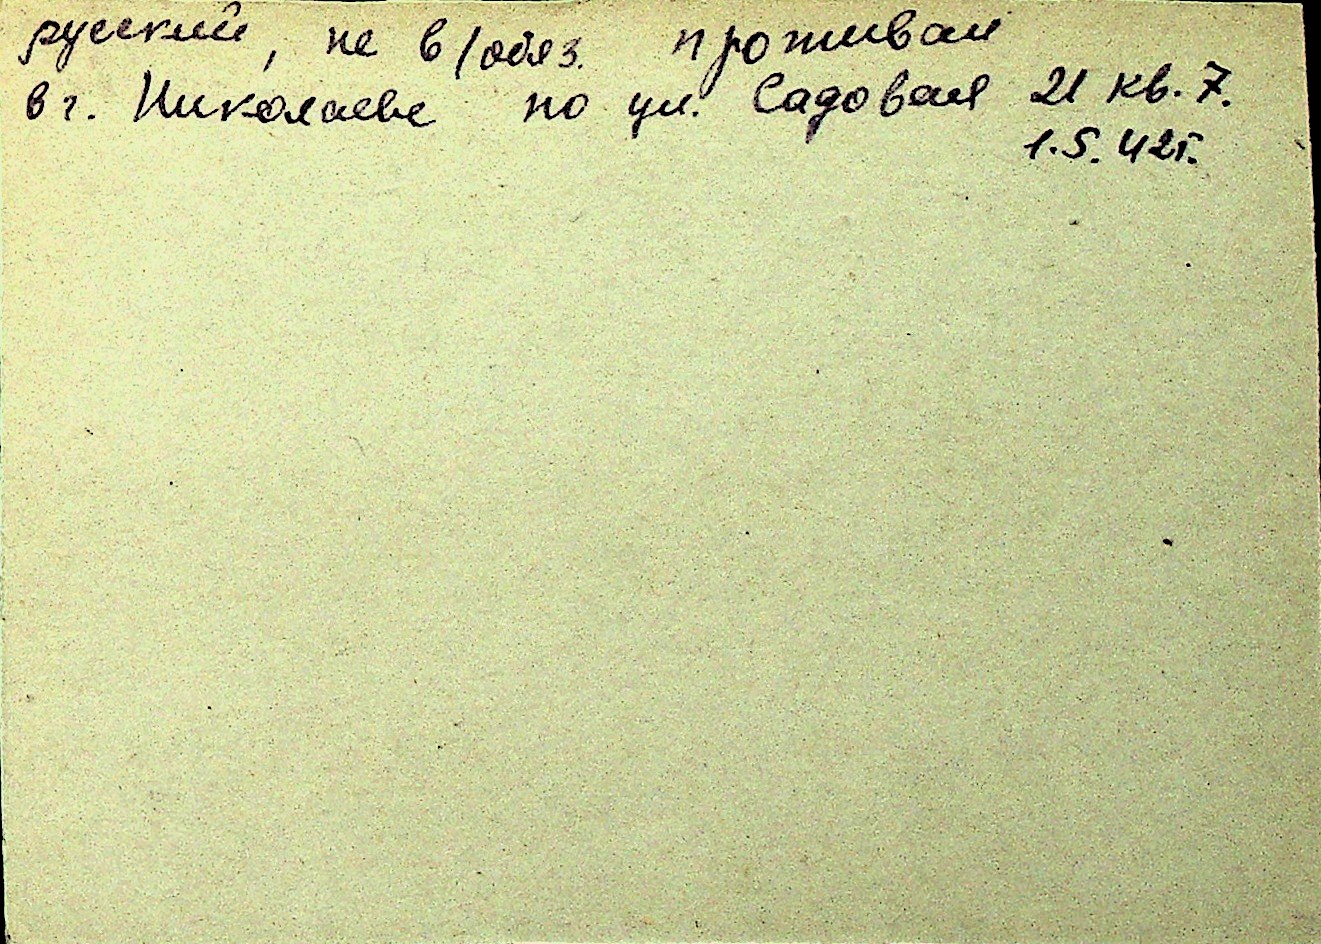 русский, не в/обяз. проживал
в г. Николаеве по ул. Садовая 21 кв. 7.
1.5.42г.